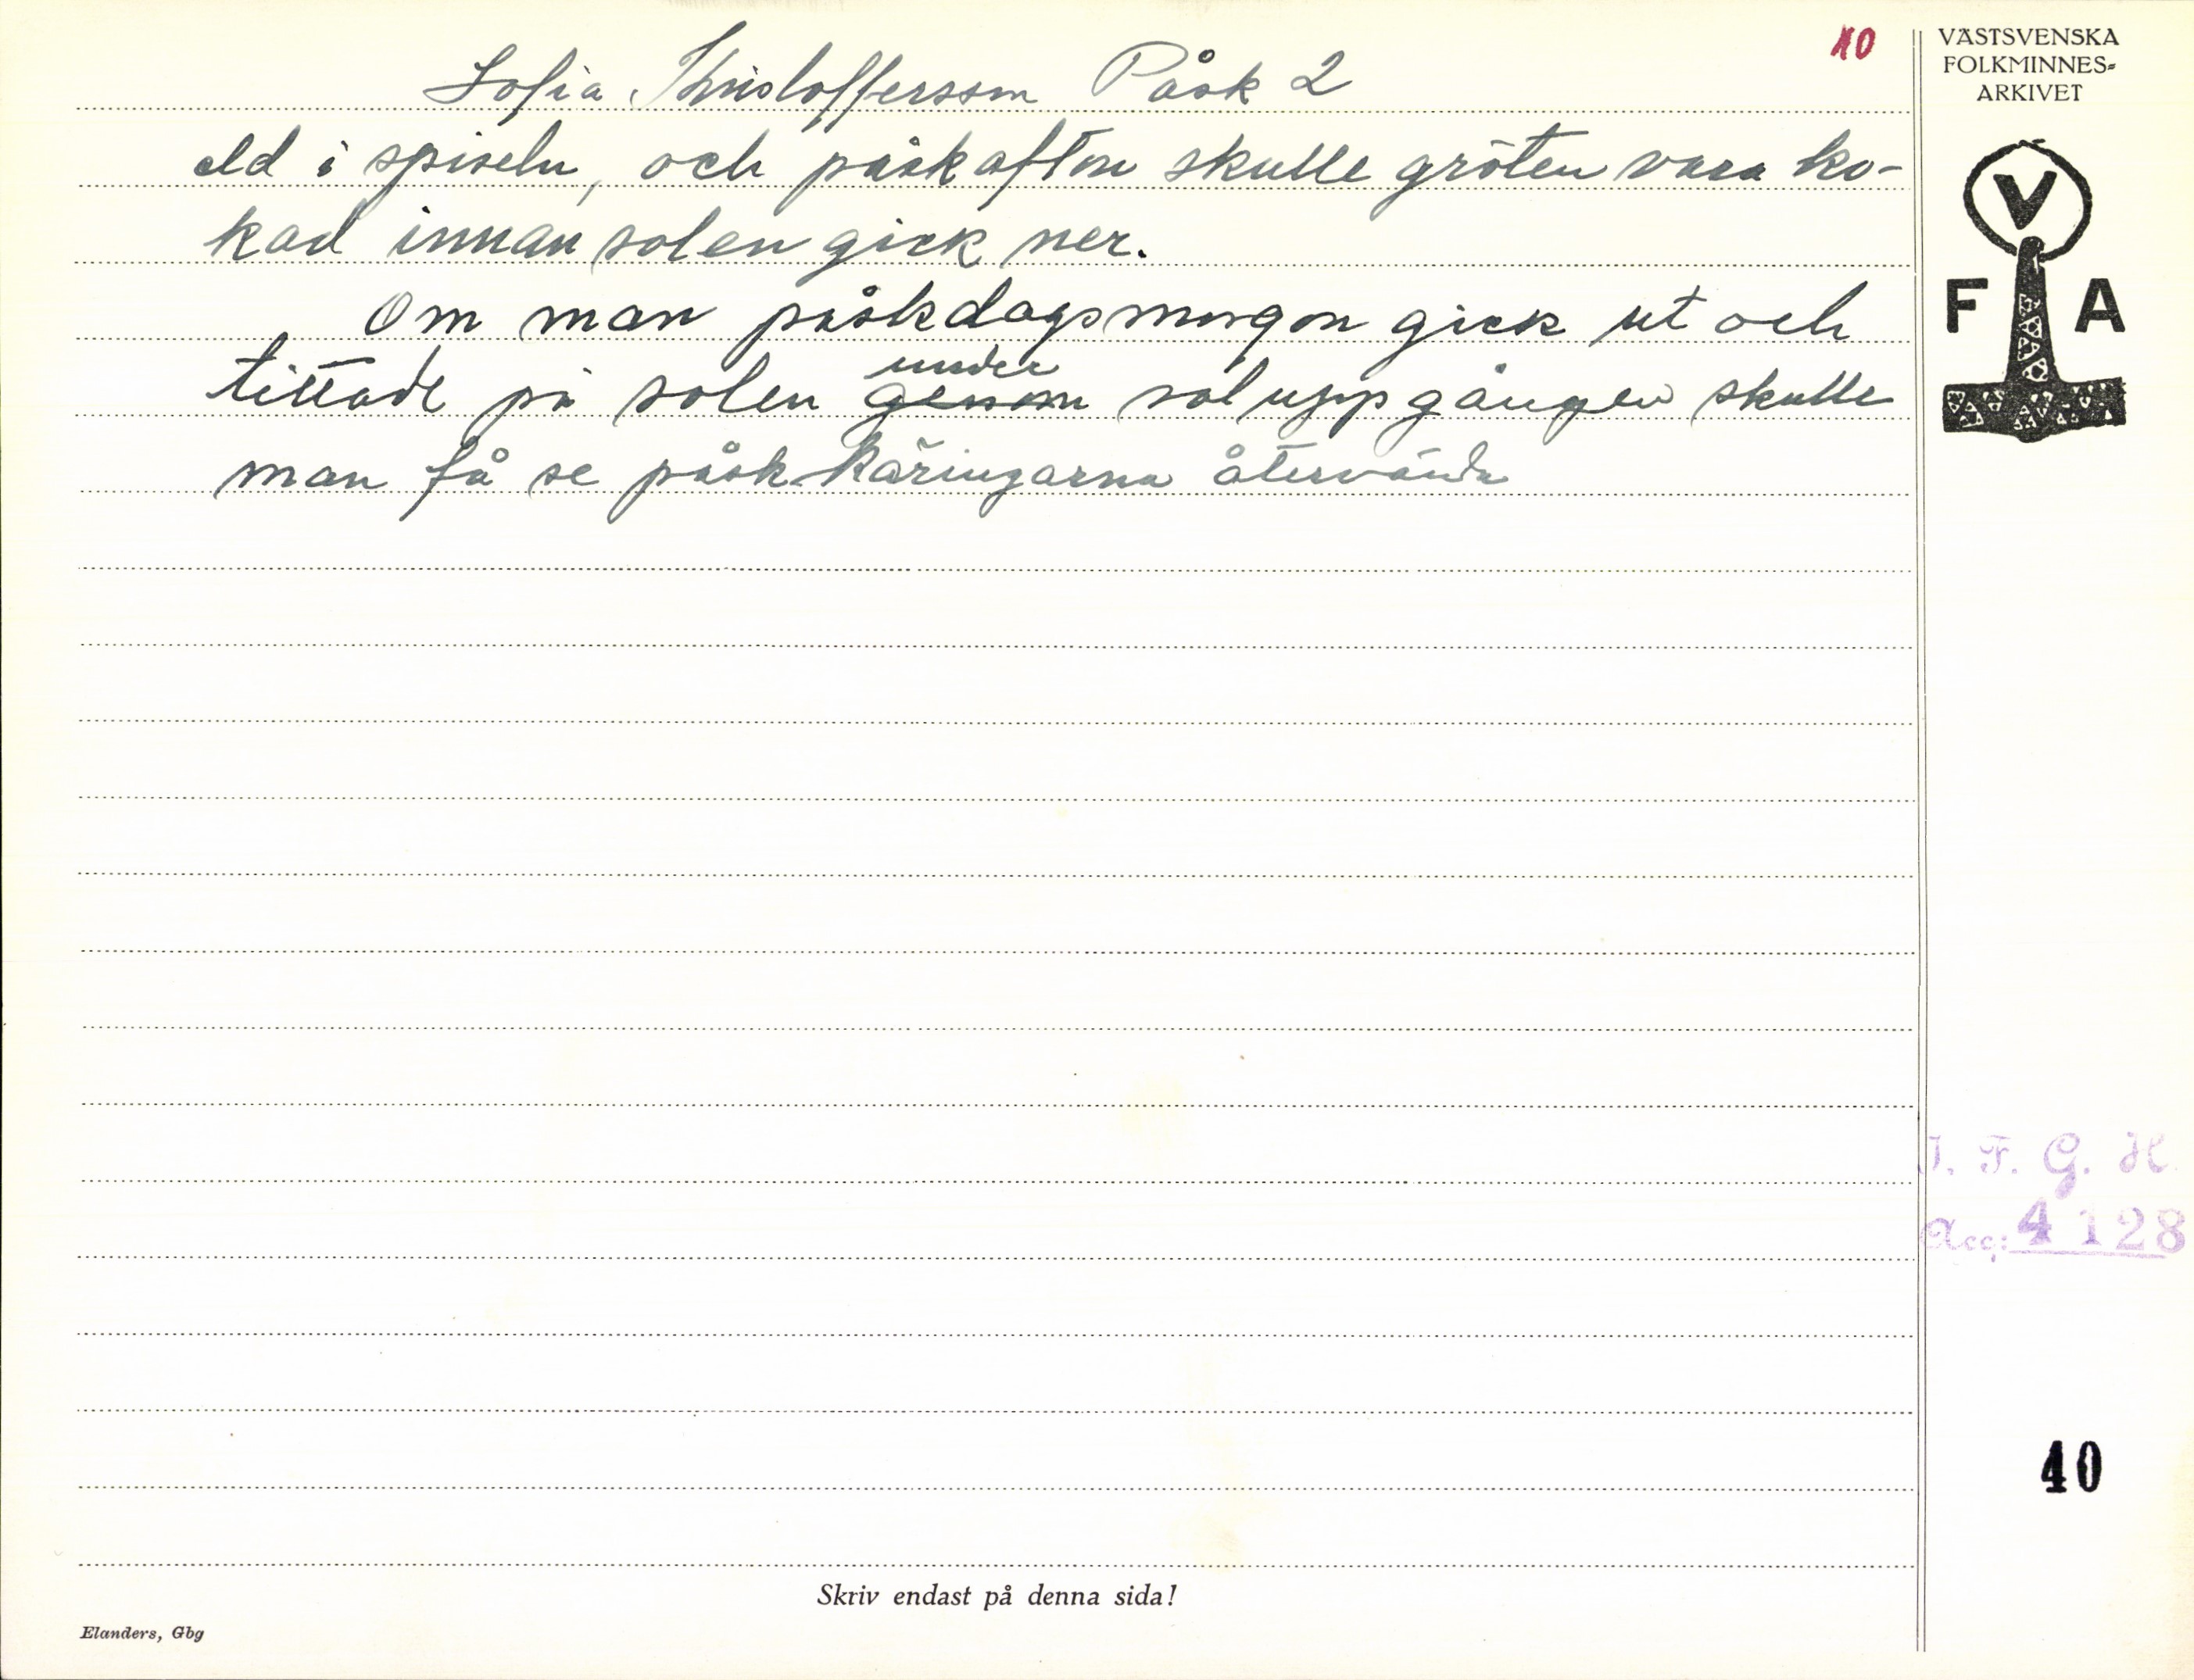 10
Sofia Kristoffersson Påsk 2
eld i spiseln, och påskafton skulle gröten vara ko-
kad innan solen gick ner.
Om man påskdagsmorgon gick ut och
under
tittade på solen genom soluppgången skulle
man få se påsk-käringarna återvända
VÄSTSVENSKA
FOLKMINNES-
ARKIVET
V
F A
I. F. G. H.
Acc: 4128
40
Skriv endast på denna sida!
Elanders, Gbg